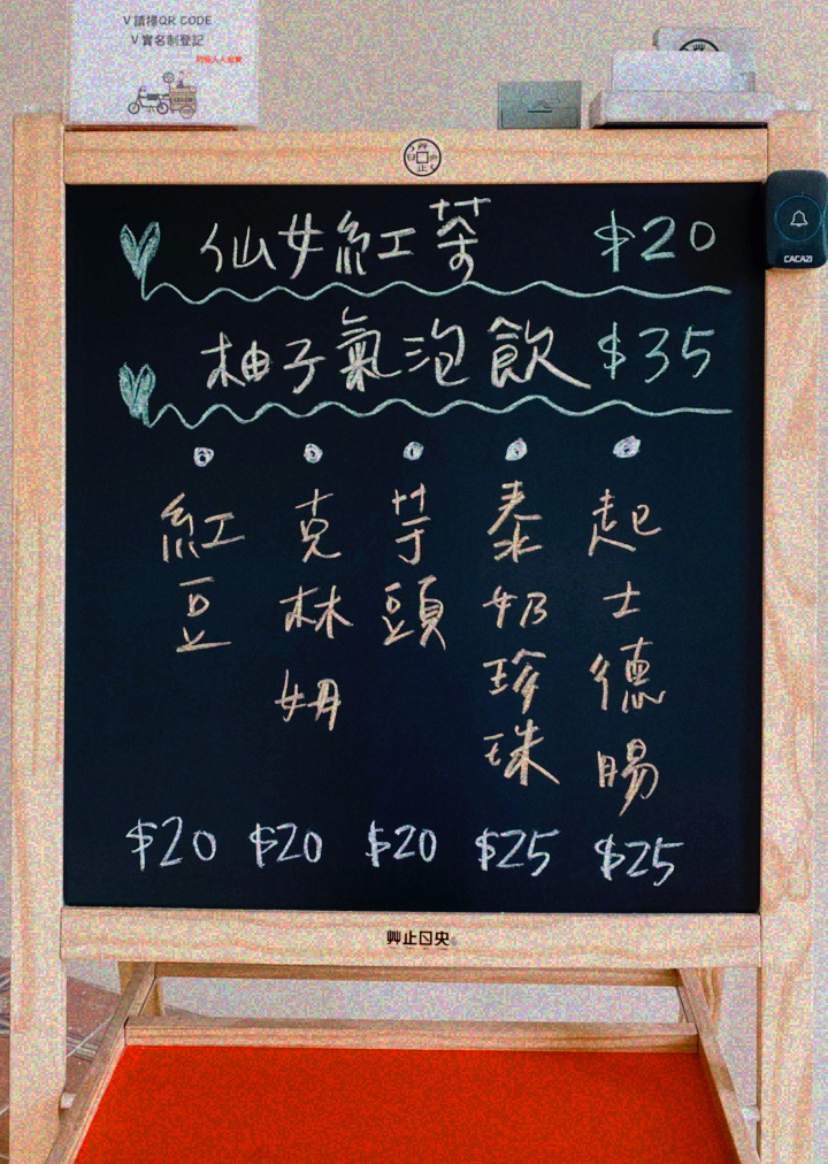 V 請掃QR CODE
V 實名制登記
CACAZI
仙女紅茶 $20
柚子氣泡飲 $35
紅豆 $20
克林姆 $20
芋頭 $20
泰奶珍珠 $25
起士德腸 $25
艸止日央